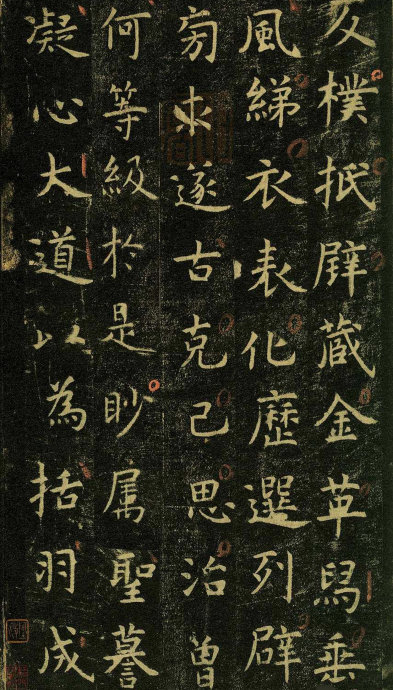 反樸抵璧藏金革舄垂
風綈衣表化歷選列辟
旁求遂古克己思治曾
何等級於是眇属聖謩
凝心大道以為括羽成